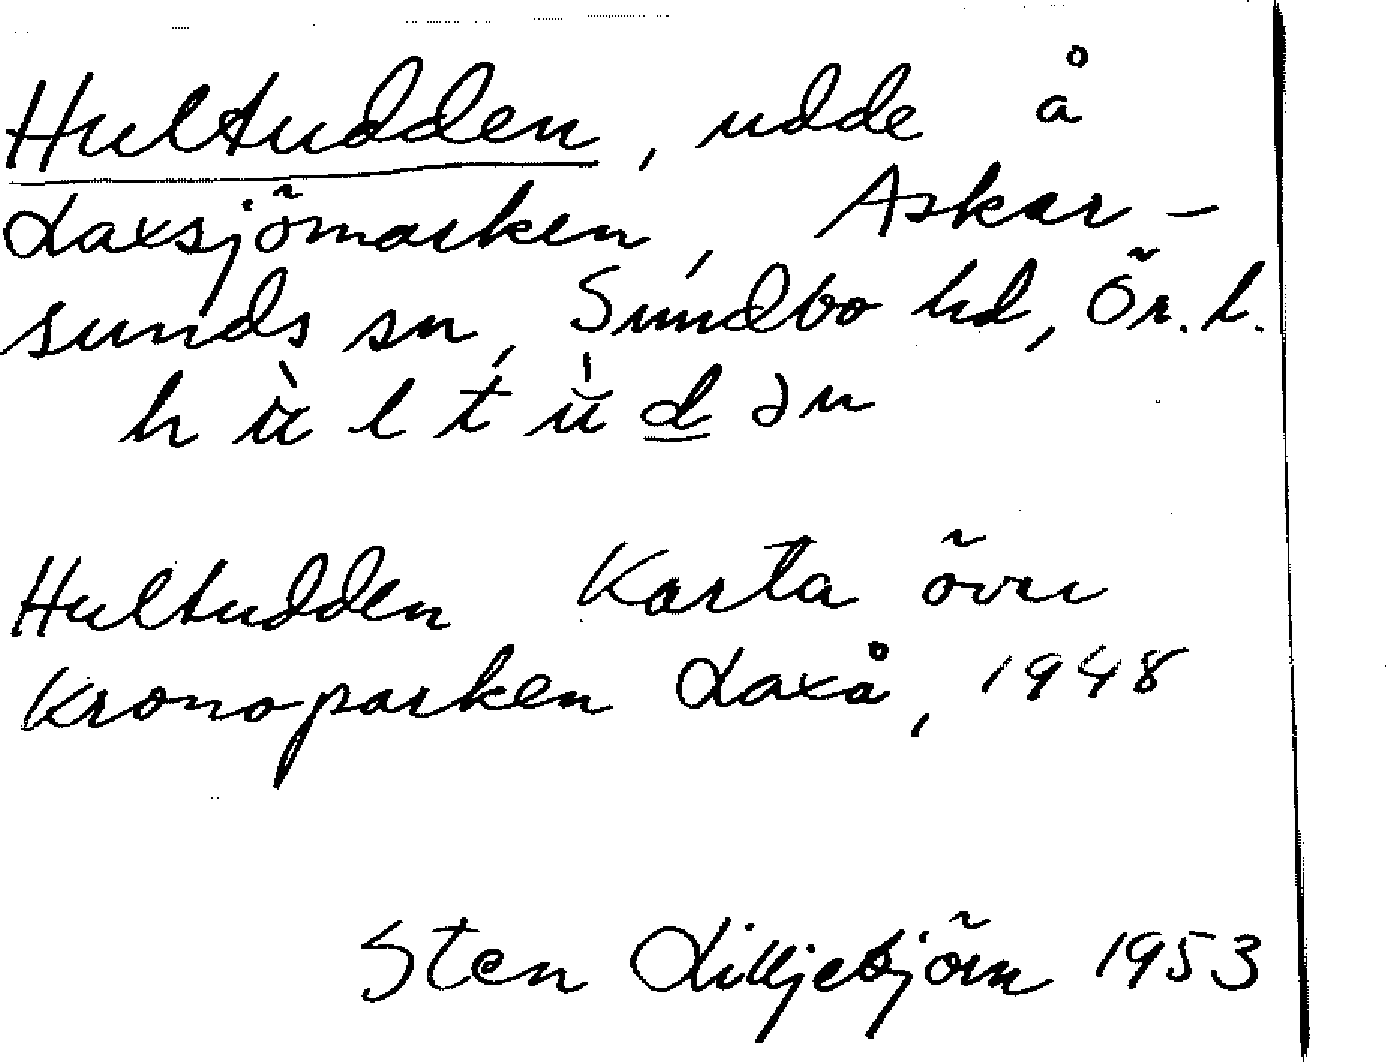 Hultudden, udde å
Laxsjömarken, Askar-
sunds sn, Sundbo hd, Ör. l.
h ù l t ù d ə n
Hultudden Karta över
Kronoparken Laxå, 1948
Sten Lilljebjörn 1953